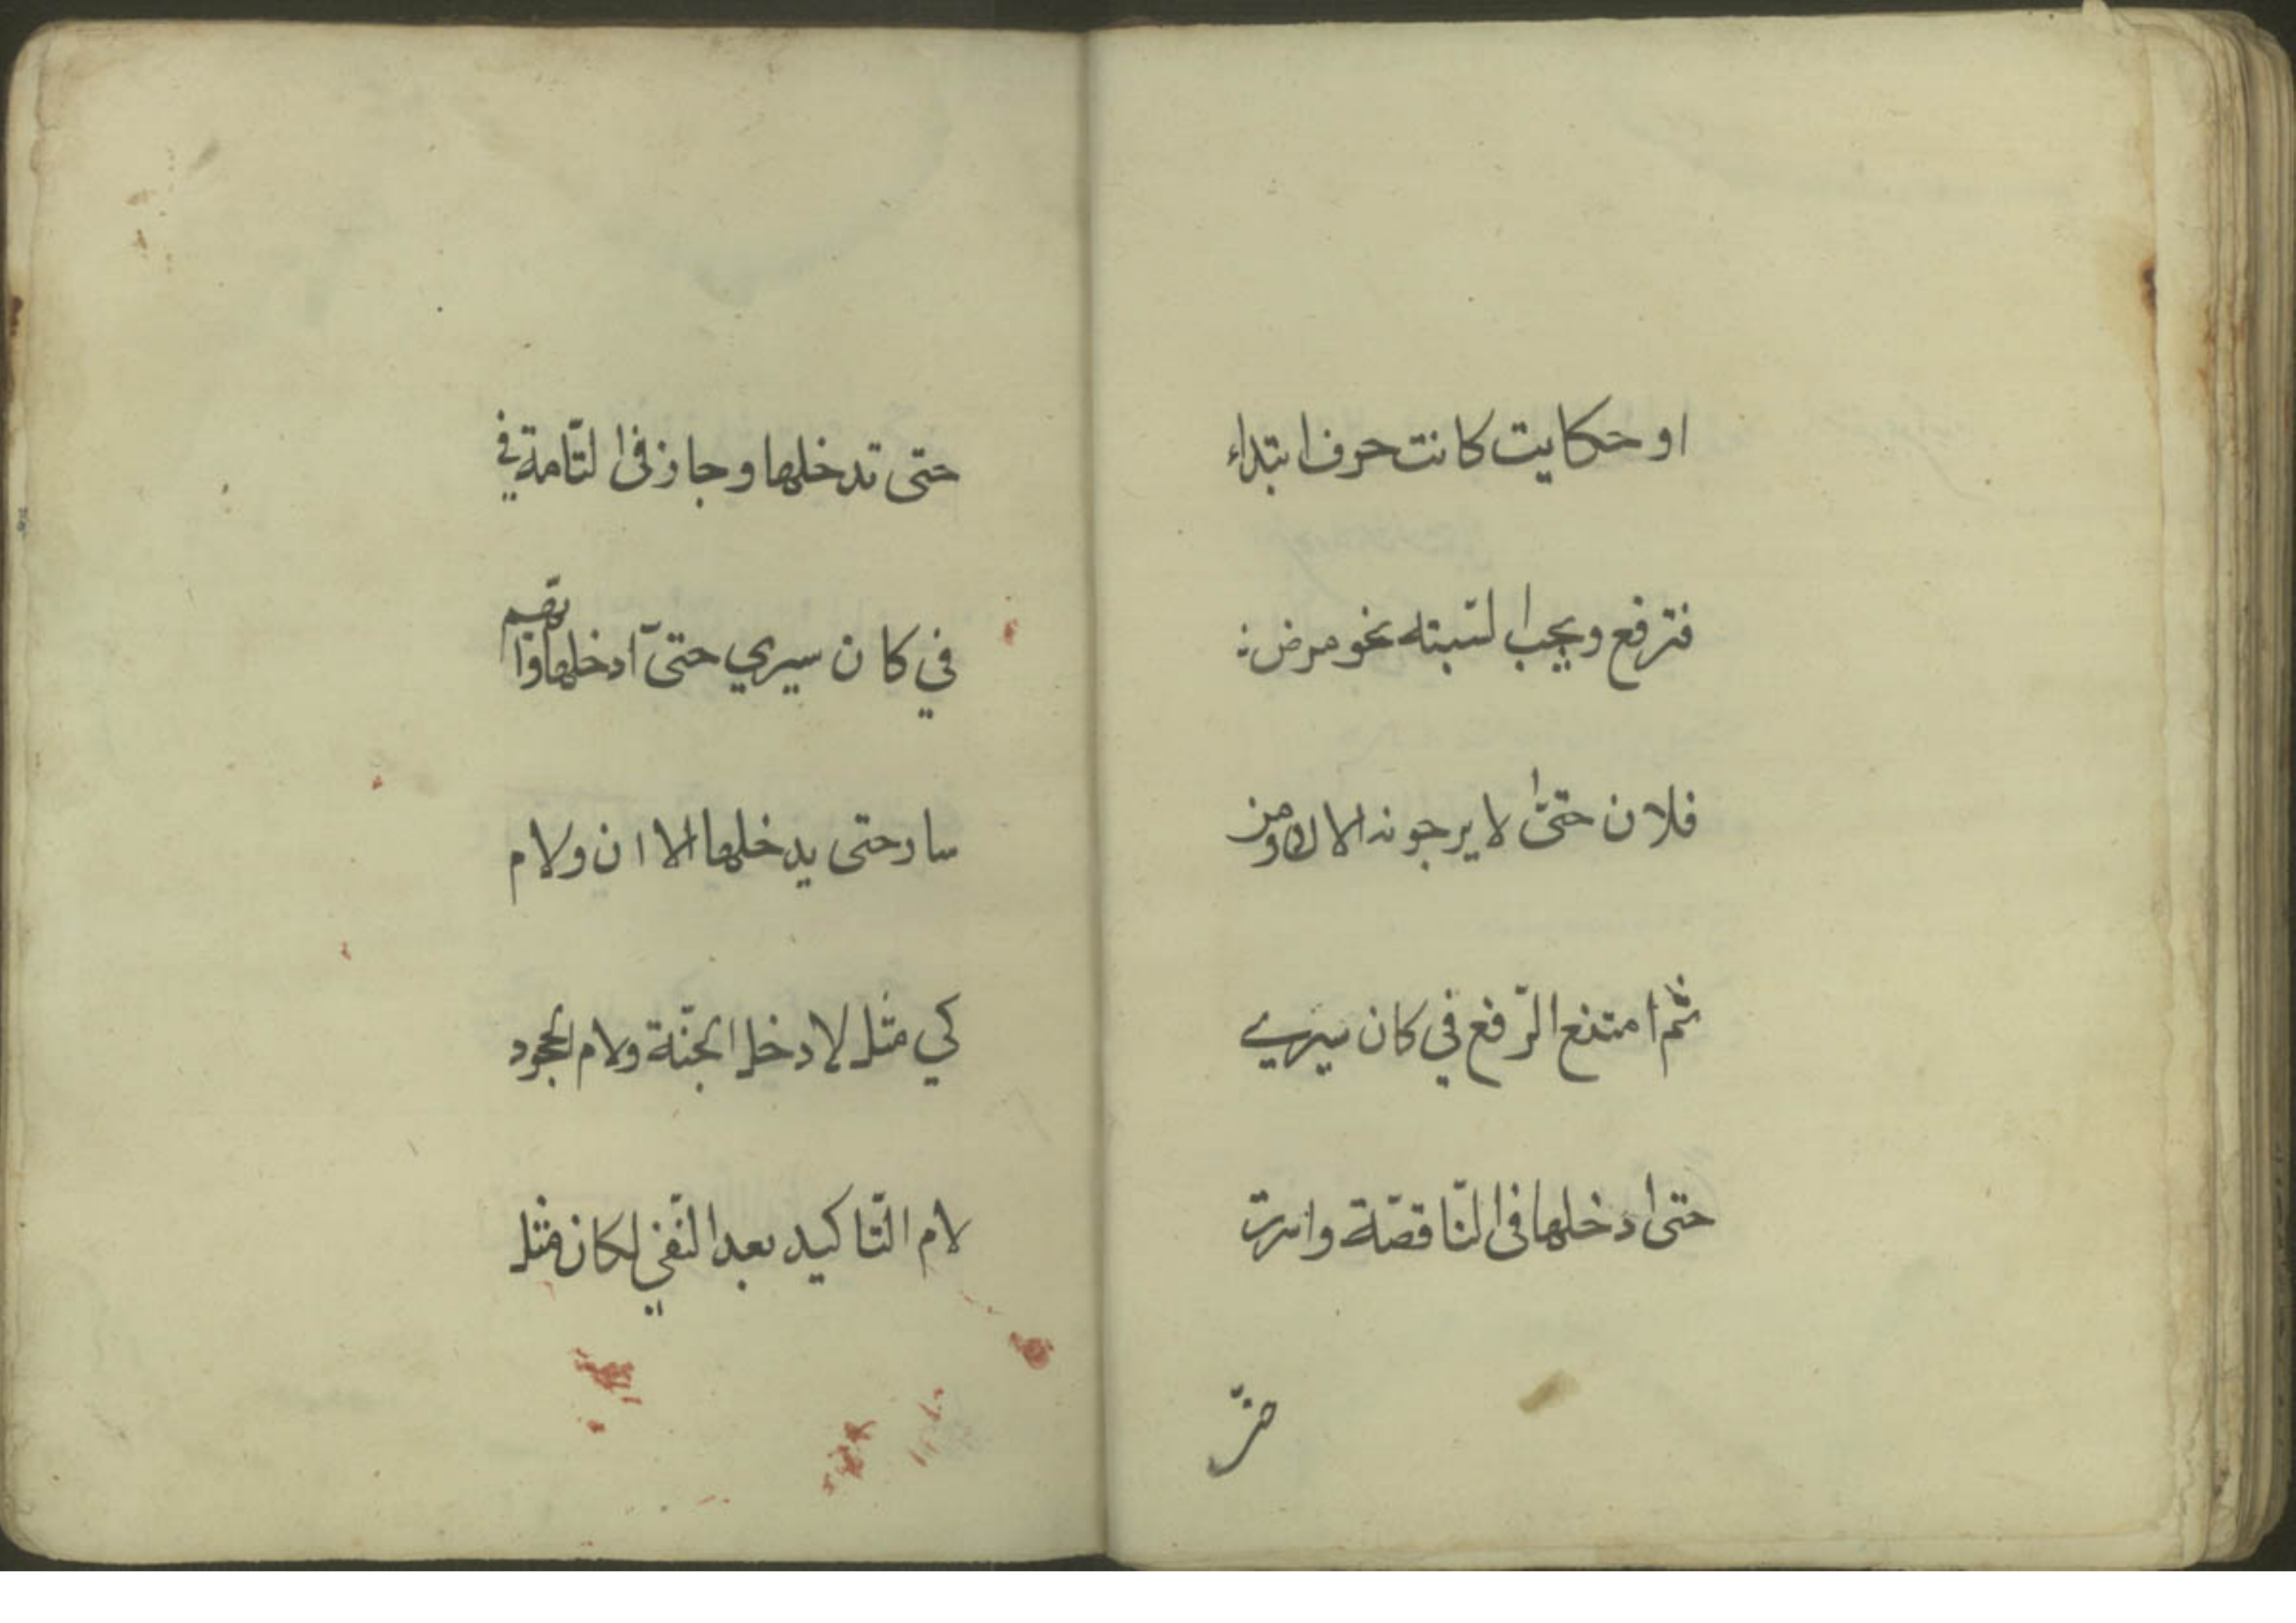 او حكايت كانت حرف ابتداء
فترفع ويجب السّببته نحو مرض
فلان حتىّ لا يرجونه الالان ومن
ثمّ امتنع الرّفع في كان سيري
حتى ادخلها فى النّاقصّة واسرت
حتى تدخلها وجاز فى التّامة في
في كان سيري حتىّ ادخلها وايّهم
سار حتى يدخلها الا ان ولام
كي مثل لادخل الجنّة ولام الجحود
لام التّاكيد بعد النّفي لكان مثل